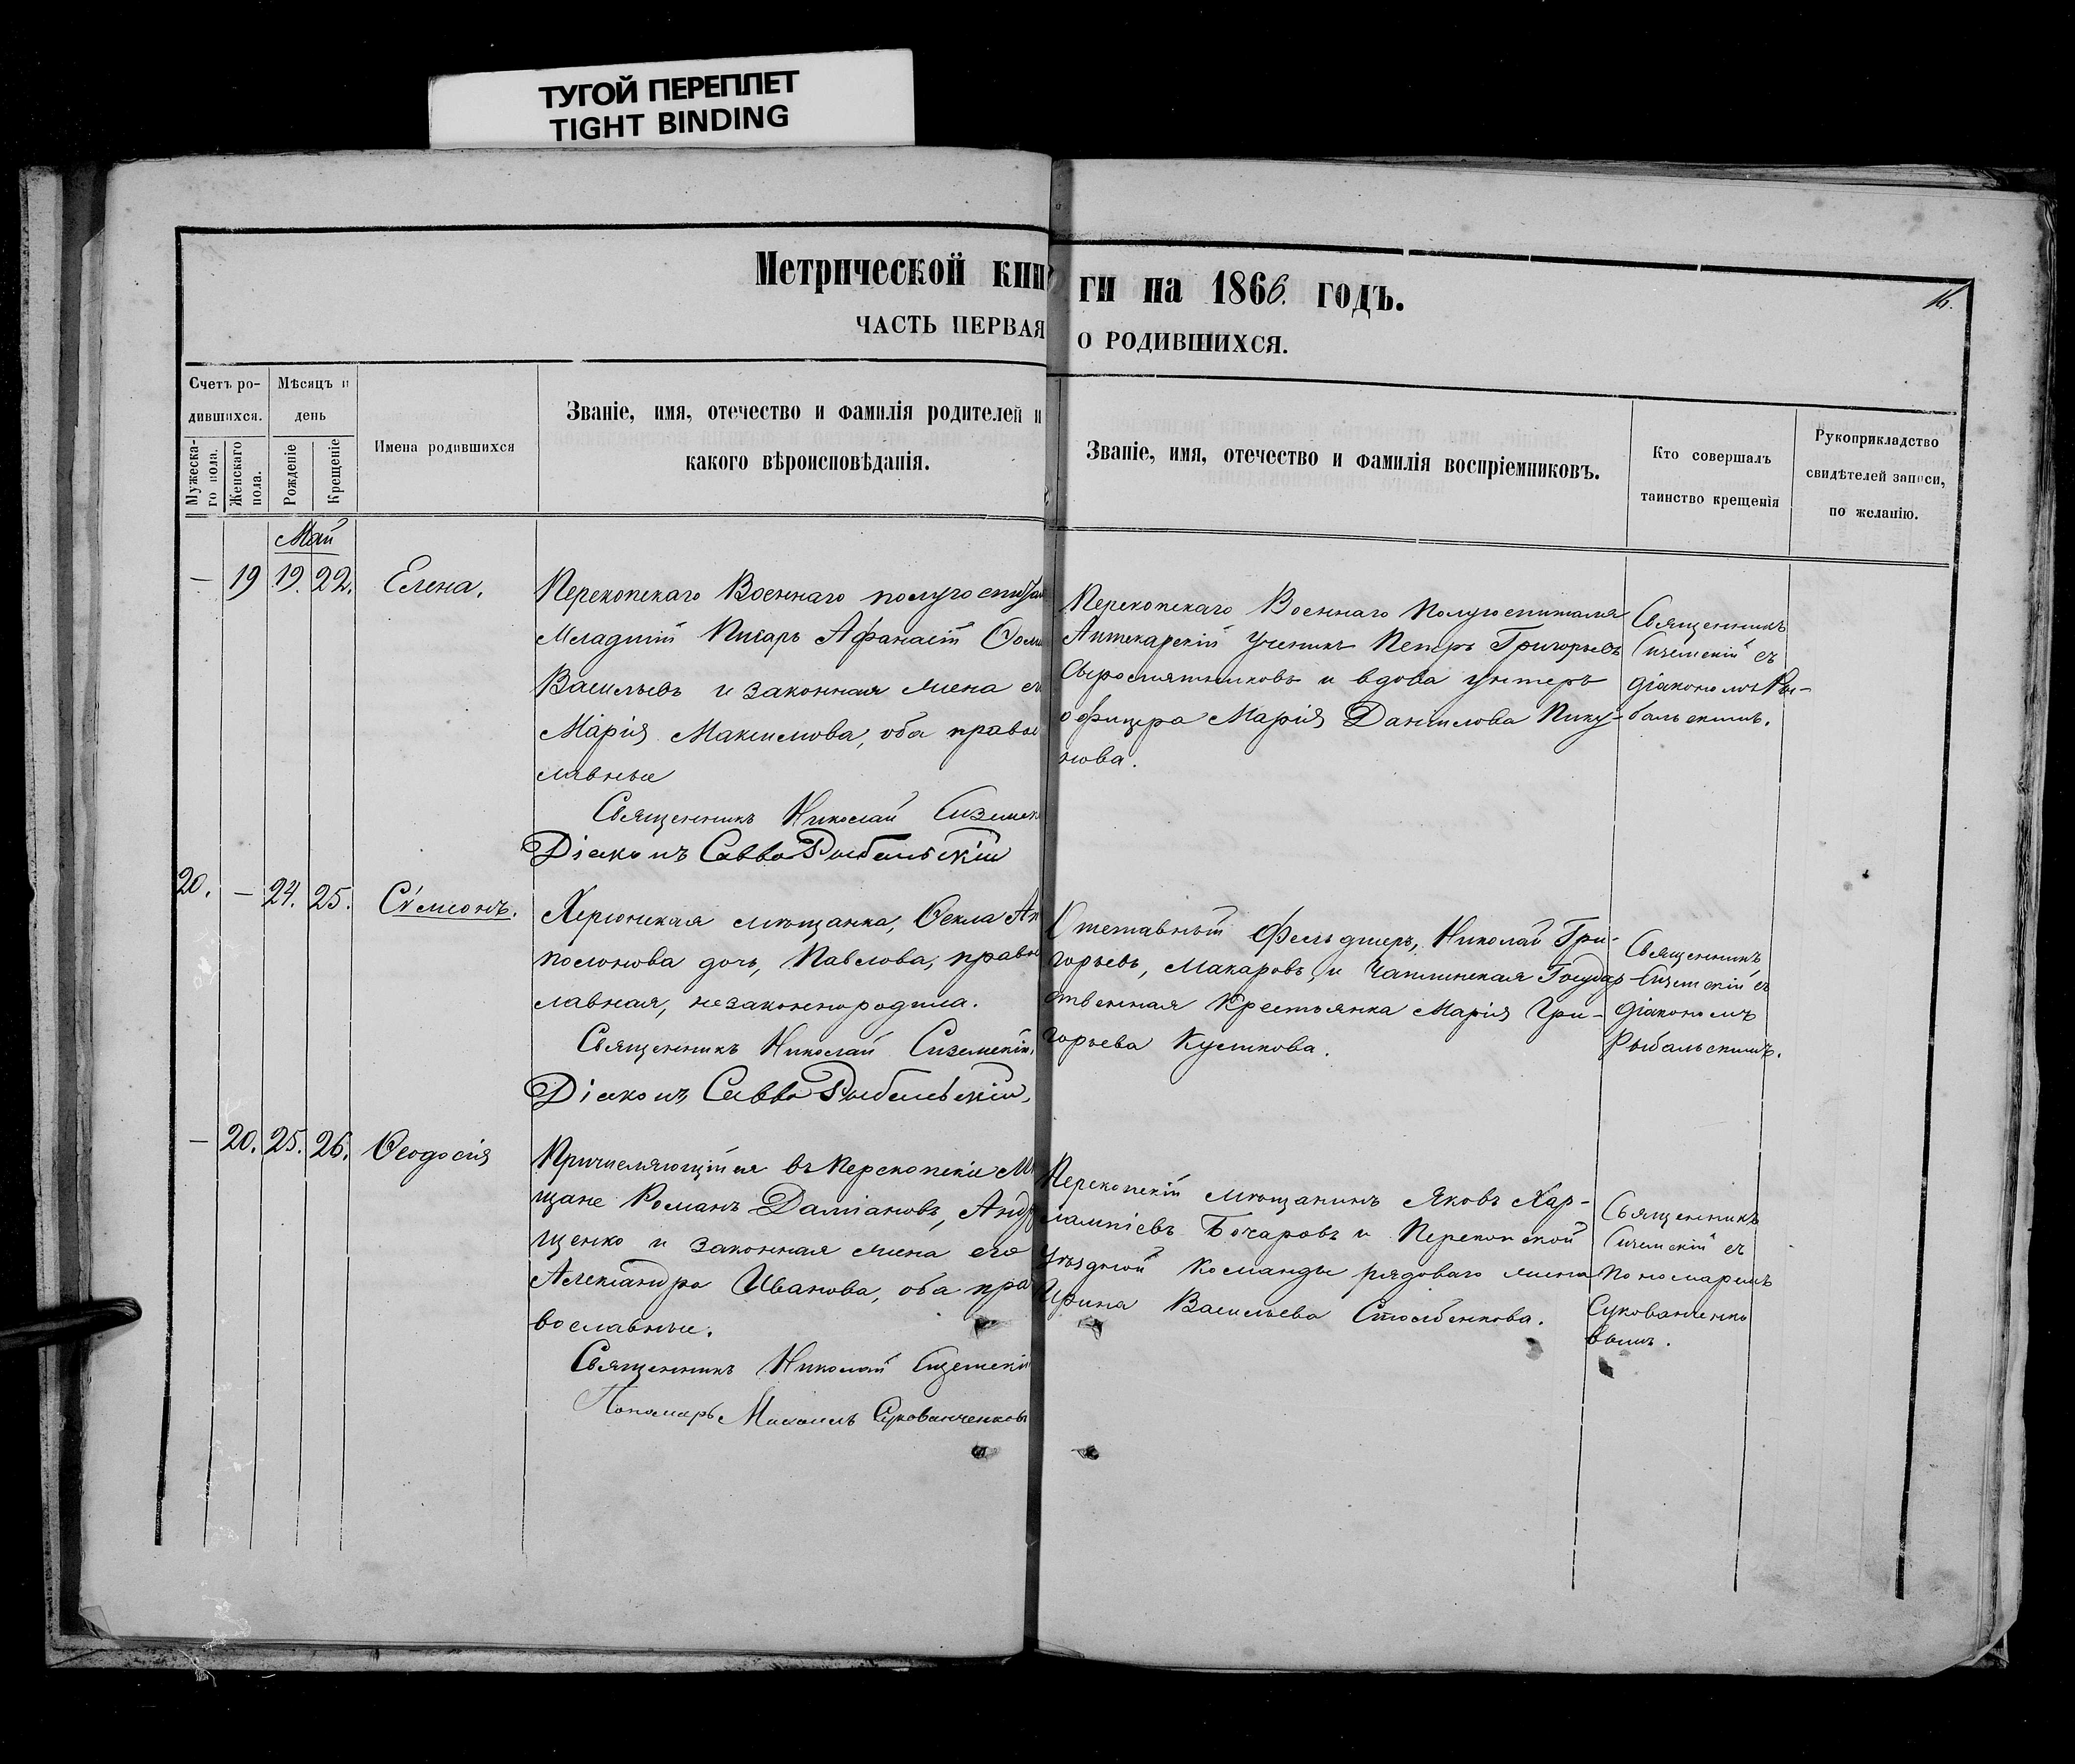 ТУГОЙ ПЕРЕПЛЕТ
TIGHT BINDING
Метрической кни ги на 1866. годъ.
16.
ЧАСТЬ ПЕРВАЯ О РОДИВШИХСЯ.
Счетъ ро-
дившихся.
Мужеска-
го пола.
Женскаго
пола.
Мѣсяцъ и
день
Рожденіе
Крещеніе
Имена родившихся
Званіе, имя, отечество и фамилія родителей и
какого вѣроисповѣданія.
Званіе, имя, отечество и фамилія воспріемниковъ.
Кто совершалъ
таинство крещенія
Рукоприкладство
свидѣтелей записи,
по желанію.
Май
— 19 19. 22. Елена.
Перекопскаго Военнаго полугоспитал
Младшій Писарь Афанасій
Васильевъ и законная жена е
Марія Максимова, оба право
славные
Священникъ Николай Сиземск
Діаконъ Савва Рыбальскій
Перекопскаго Военнаго Полугоспиталя
Аптекарскій Ученикъ Петръ Григорьевъ
Сыромятниковъ и вдова унтеръ
офицера Марія Данилова Пику-
нова.
Священникъ
Сиземскій съ
діакономъ Ры-
бальскимъ.
20. — 24. 25. Сѵмеонъ.
Херсонская мѣщанка, Ѳекла Ап
полонова дочь, Павлова, право
славная, незаконнородила.
Священникъ Николай Сиземскій.
Діаконъ Савва Рыбальскій.
Отставный Фельдшеръ, Николай Гри-
горьевъ, Макаровъ, и Чаплинская Государ
ственная Крестьянка Марія Гри-
горьева Кушкова.
Священникъ
Сиземскій съ
діакономъ
Рыбальскимъ.
— 20. 25. 26. Ѳеодосія
Причисляющійся въ Перекопскіе Мѣ
щане Романъ Даміановъ, Андр
щенко и законная жена его
Александра Иванова, оба пра
вославные.
Священникъ Николай Сиземскій
Пономарь Михаилъ Сукованченковъ
Перекопскій мѣщанинъ Яковъ Хар-
лампіевъ Бочаровъ и Перекопской
уѣздной Команды рядоваго жена
Ирина Васильева Столбенкова.
Священникъ
Сиземскій съ
Пономаремъ
Сукованченко
вымъ.